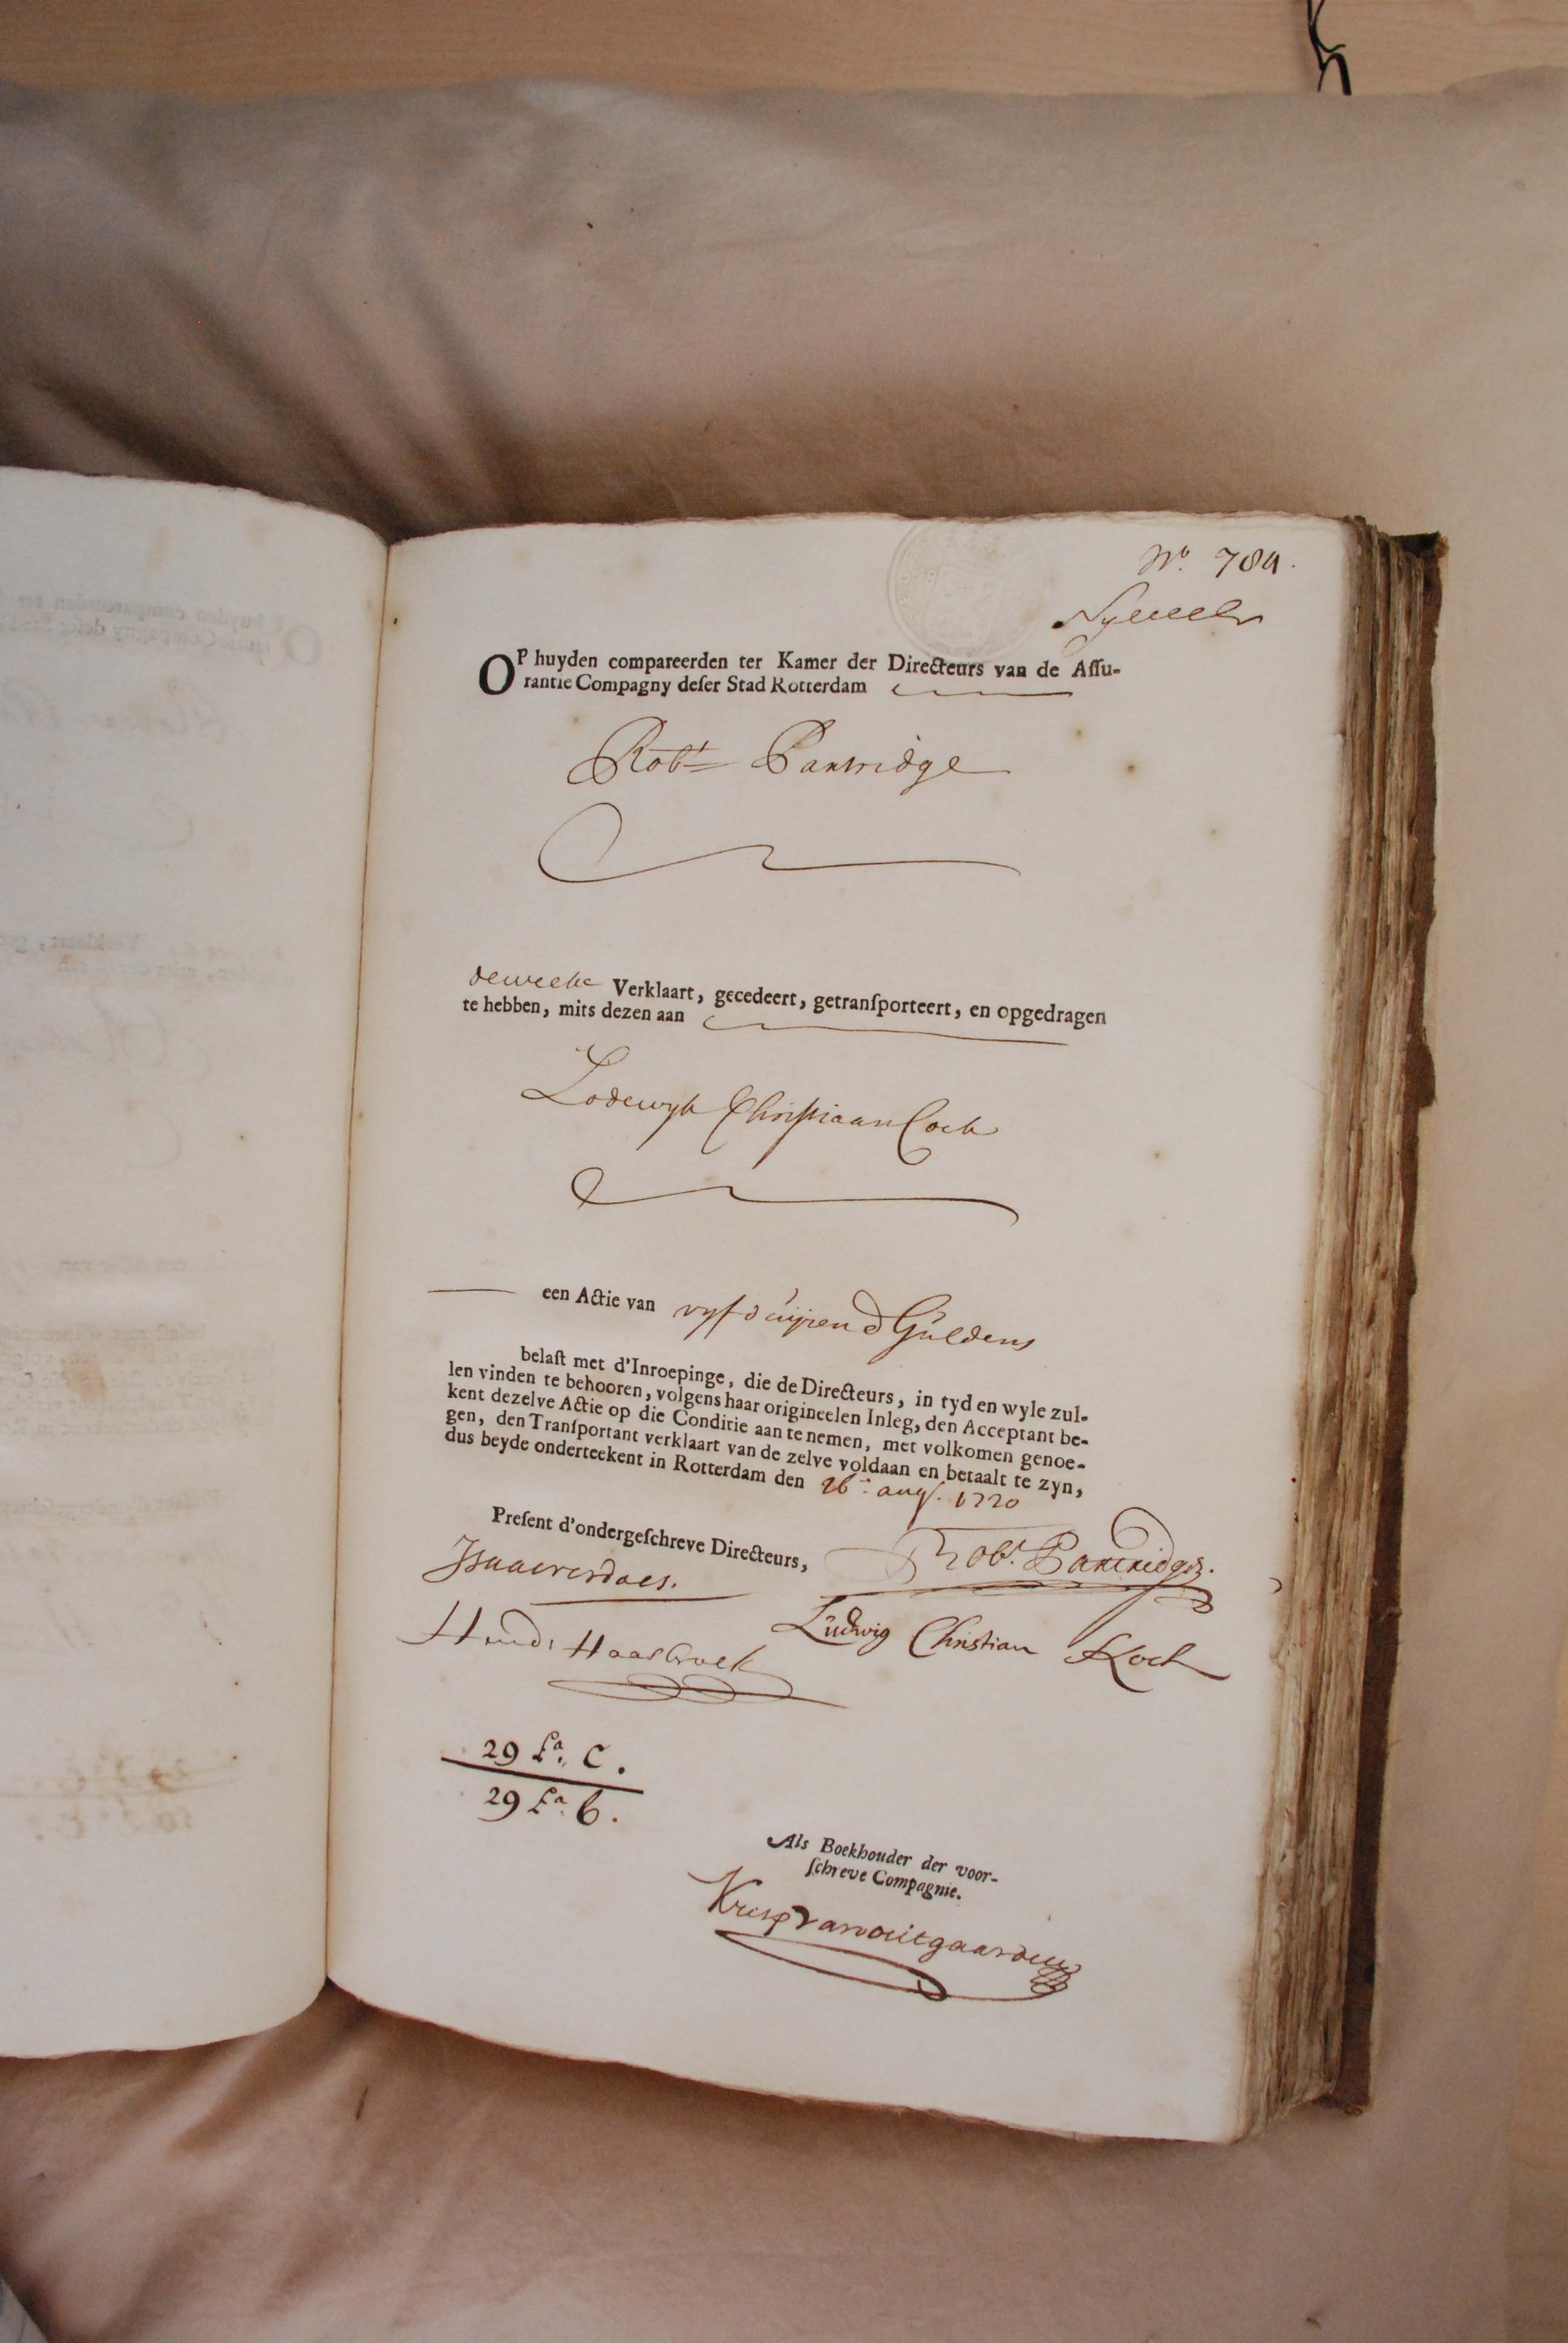 No. 784.
OP huyden compareerden ter Kamer der Directeurs van de Assu-
rantie Compagny deser Stad Rotterdam
Robt Partridge
dewelke Verklaart, gecedeert, getransporteert, en opgedragen
te hebben, mits dezen aan
Lodewyk Christiaan Cock
een Actie van vyf duijsend Guldens
belast met d'Inroepinge, die de Directeurs, in tyd en wyle zul-
len vinden te behooren, volgens haar origineelen Inleg, den Acceptant be-
kent dezelve Actie op die Conditie aan te nemen, met volkomen genoe-
gen, den Transportant verklaart van de zelve voldaan en betaalt te zyn,
dus beyde onderteekent in Rotterdam den 26 aug. 1720
Present d'ondergeschreve Directeurs,
Robt. Partridge.
Ludwig Christian Koch
Hend: Haasbroek
29 La. C.
29 La. b.
Als Boekhouder der voor-
schreve Compagnie.